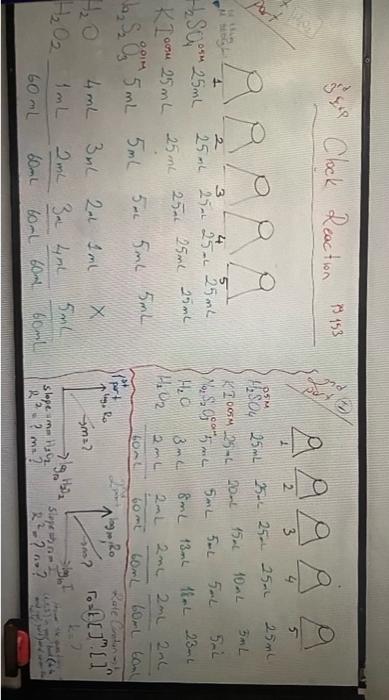 Clock Reaction pg 153
1 2 3 4 5
H₂SO₄ 0.5M 25mL 25mL 25mL 25mL 25mL
KI 0.05M 25mL 25mL 25mL 25mL 25mL
Na₂S₂O₃ 0.05M 5mL 5mL 5mL 5mL 5mL
H₂O 4mL 3mL 2mL 1mL X
H₂O₂ 1mL 2mL 3mL 4mL 5mL
60mL 60mL 60mL 60mL 60mL
part
1 2 3 4 5
H₂SO₄ 0.5M 25mL 25mL 25mL 25mL 25mL
KI 0.05M 25mL 20mL 15mL 10mL 5mL
Na₂S₂O₃ 0.05M 5mL 5mL 5mL 5mL 5mL
H₂O 3mL 8mL 13mL 18mL 23mL
H₂O₂ 2mL 2mL 2mL 2mL 2mL
60mL 60mL 60mL 60mL 60mL
1st part
log R₀
m=?
log H₂O₂
slope=m=H₂O₂
R²=? m=?
2nd part
log R₀
n=?
log I
slope=n=I
R²=? n=?
Rate Constant
r₀=k[ ]ᵐ[ ]ⁿ
k=?